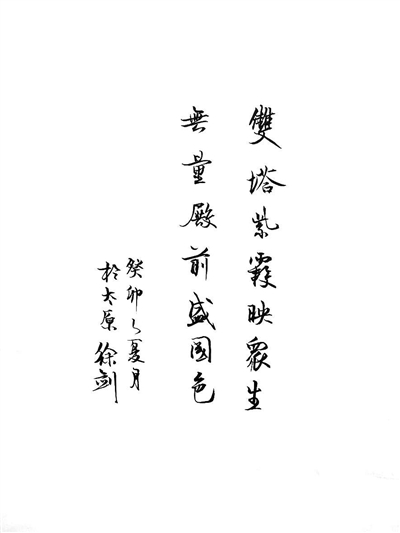 雙塔紫霞映衆生
無量殿前盛國色
癸卯之夏月
於太原徐剑